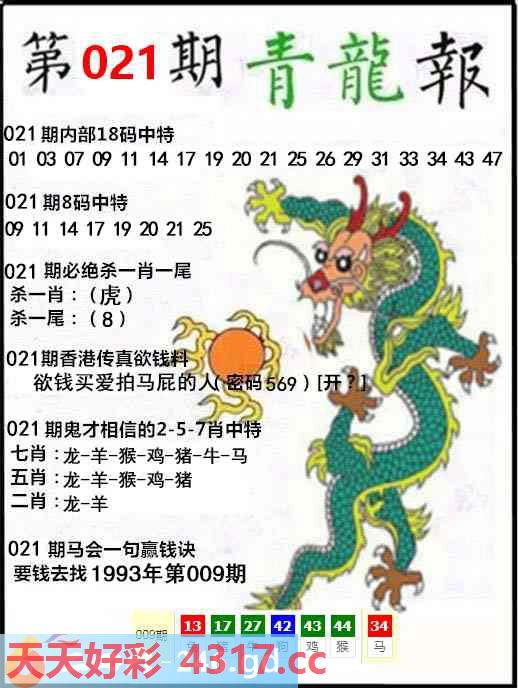 第021期青龍報
021期内部18码中特
01 03 07 09 11 14 17 19 20 21 25 26 29 31 33 34 43 47
021期8码中特
09 11 14 17 19 20 21 25
021 期必绝杀一肖一尾
杀一肖：（虎）
杀一尾：（8）
021期香港传真欲钱料
欲钱买爱拍马屁的人(密码569)[开？]
021期鬼才相信的2-5-7肖中特
七肖：龙-羊-猴-鸡-猪-牛-马
五肖：龙-羊-猴-鸡-猪
二肖：龙-羊
021 期马会一句赢钱诀
要钱去找1993年第009期
009期 13 17 27 42 43 44 34
狗 鸡 猴 马
天天好彩 4317.cc